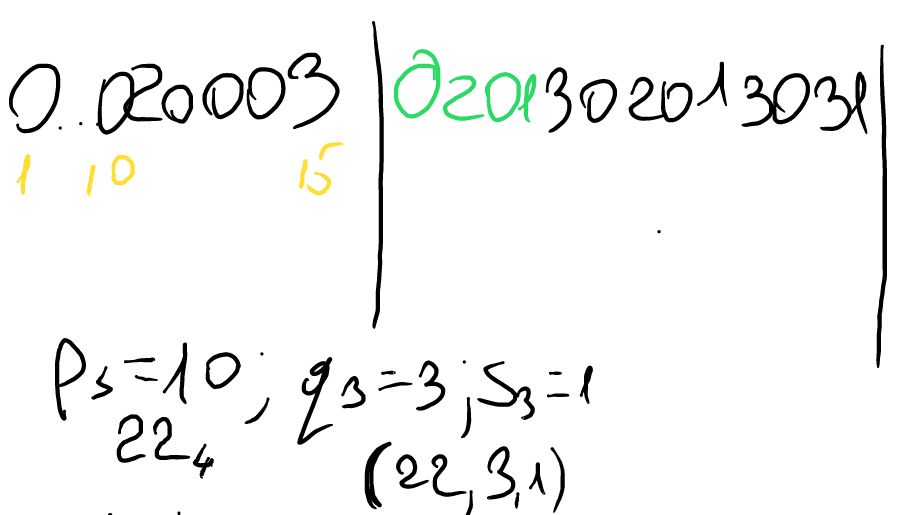 0..020003 | 0201302013031 |
1 10 15
p₃=10; q₃=3; s₃=1
22₄
(22,3,1)